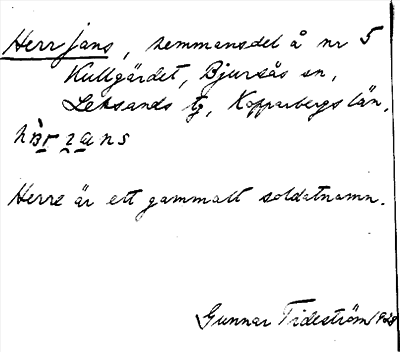 Herr jans, hemmansdel å nr 5
Kullgärdet, Bjursås sn,
Leksands tg, Kopparbergs län.
Herre är ett gammalt soldatnamn.
Gunnar Tideström 1928